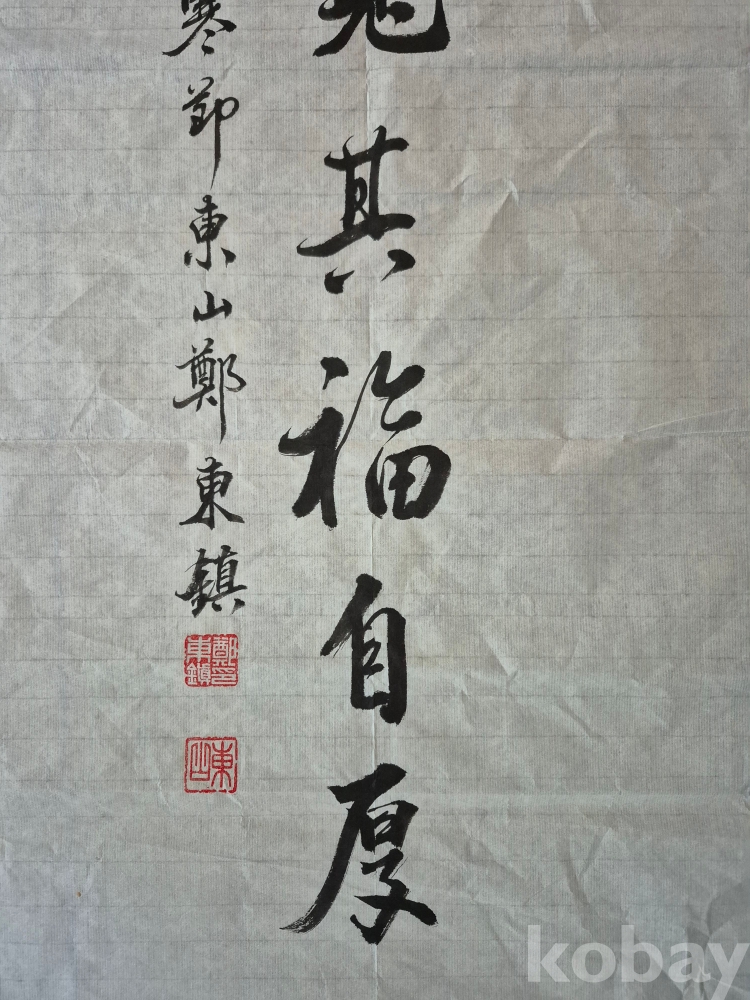 其福自厚
寒節東山鄭東鎮
鄭印東鎮
東山
kobay